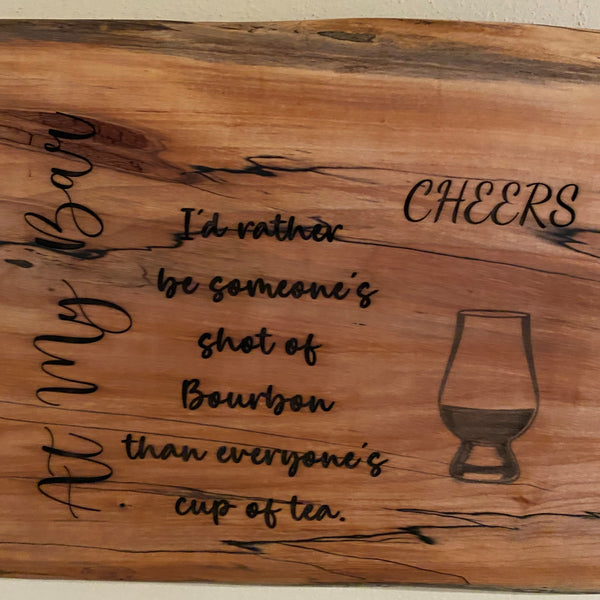 At My Bar
CHEERS
I'd rather
be someone's
shot of
Bourbon
than everyone's
cup of tea.